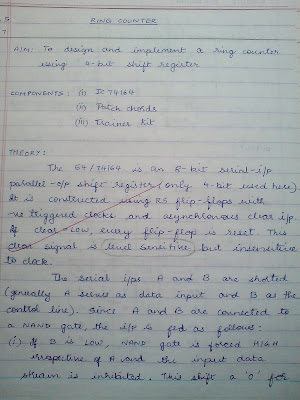 RING COUNTER
AIM: To design and implement a ring counter
using 4-bit shift register
COMPONENTS: (i) IC 74164
(ii) Patch chords
(iii) Trainer kit
THEORY:
The 54/74164 is an 8-bit serial-i/p
parallel-o/p shift register (only 4-bit used here).
It is constructed using RS flip-flops with
-ve triggered clocks and asynchronous clear i/p.
If clear = LOW, every flip-flop is reset. This
clear signal is level sensitive but insensitive
to clock.
The serial i/ps A and B are shorted
(generally A serves as data input and B as the
control line). Since A and B are connected to
a NAND gate, the i/p is fed as follows:
(i) If B is LOW, NAND gate is forced HIGH
irrespective of A and the input data
stream is inhibited. This shift a '0' for